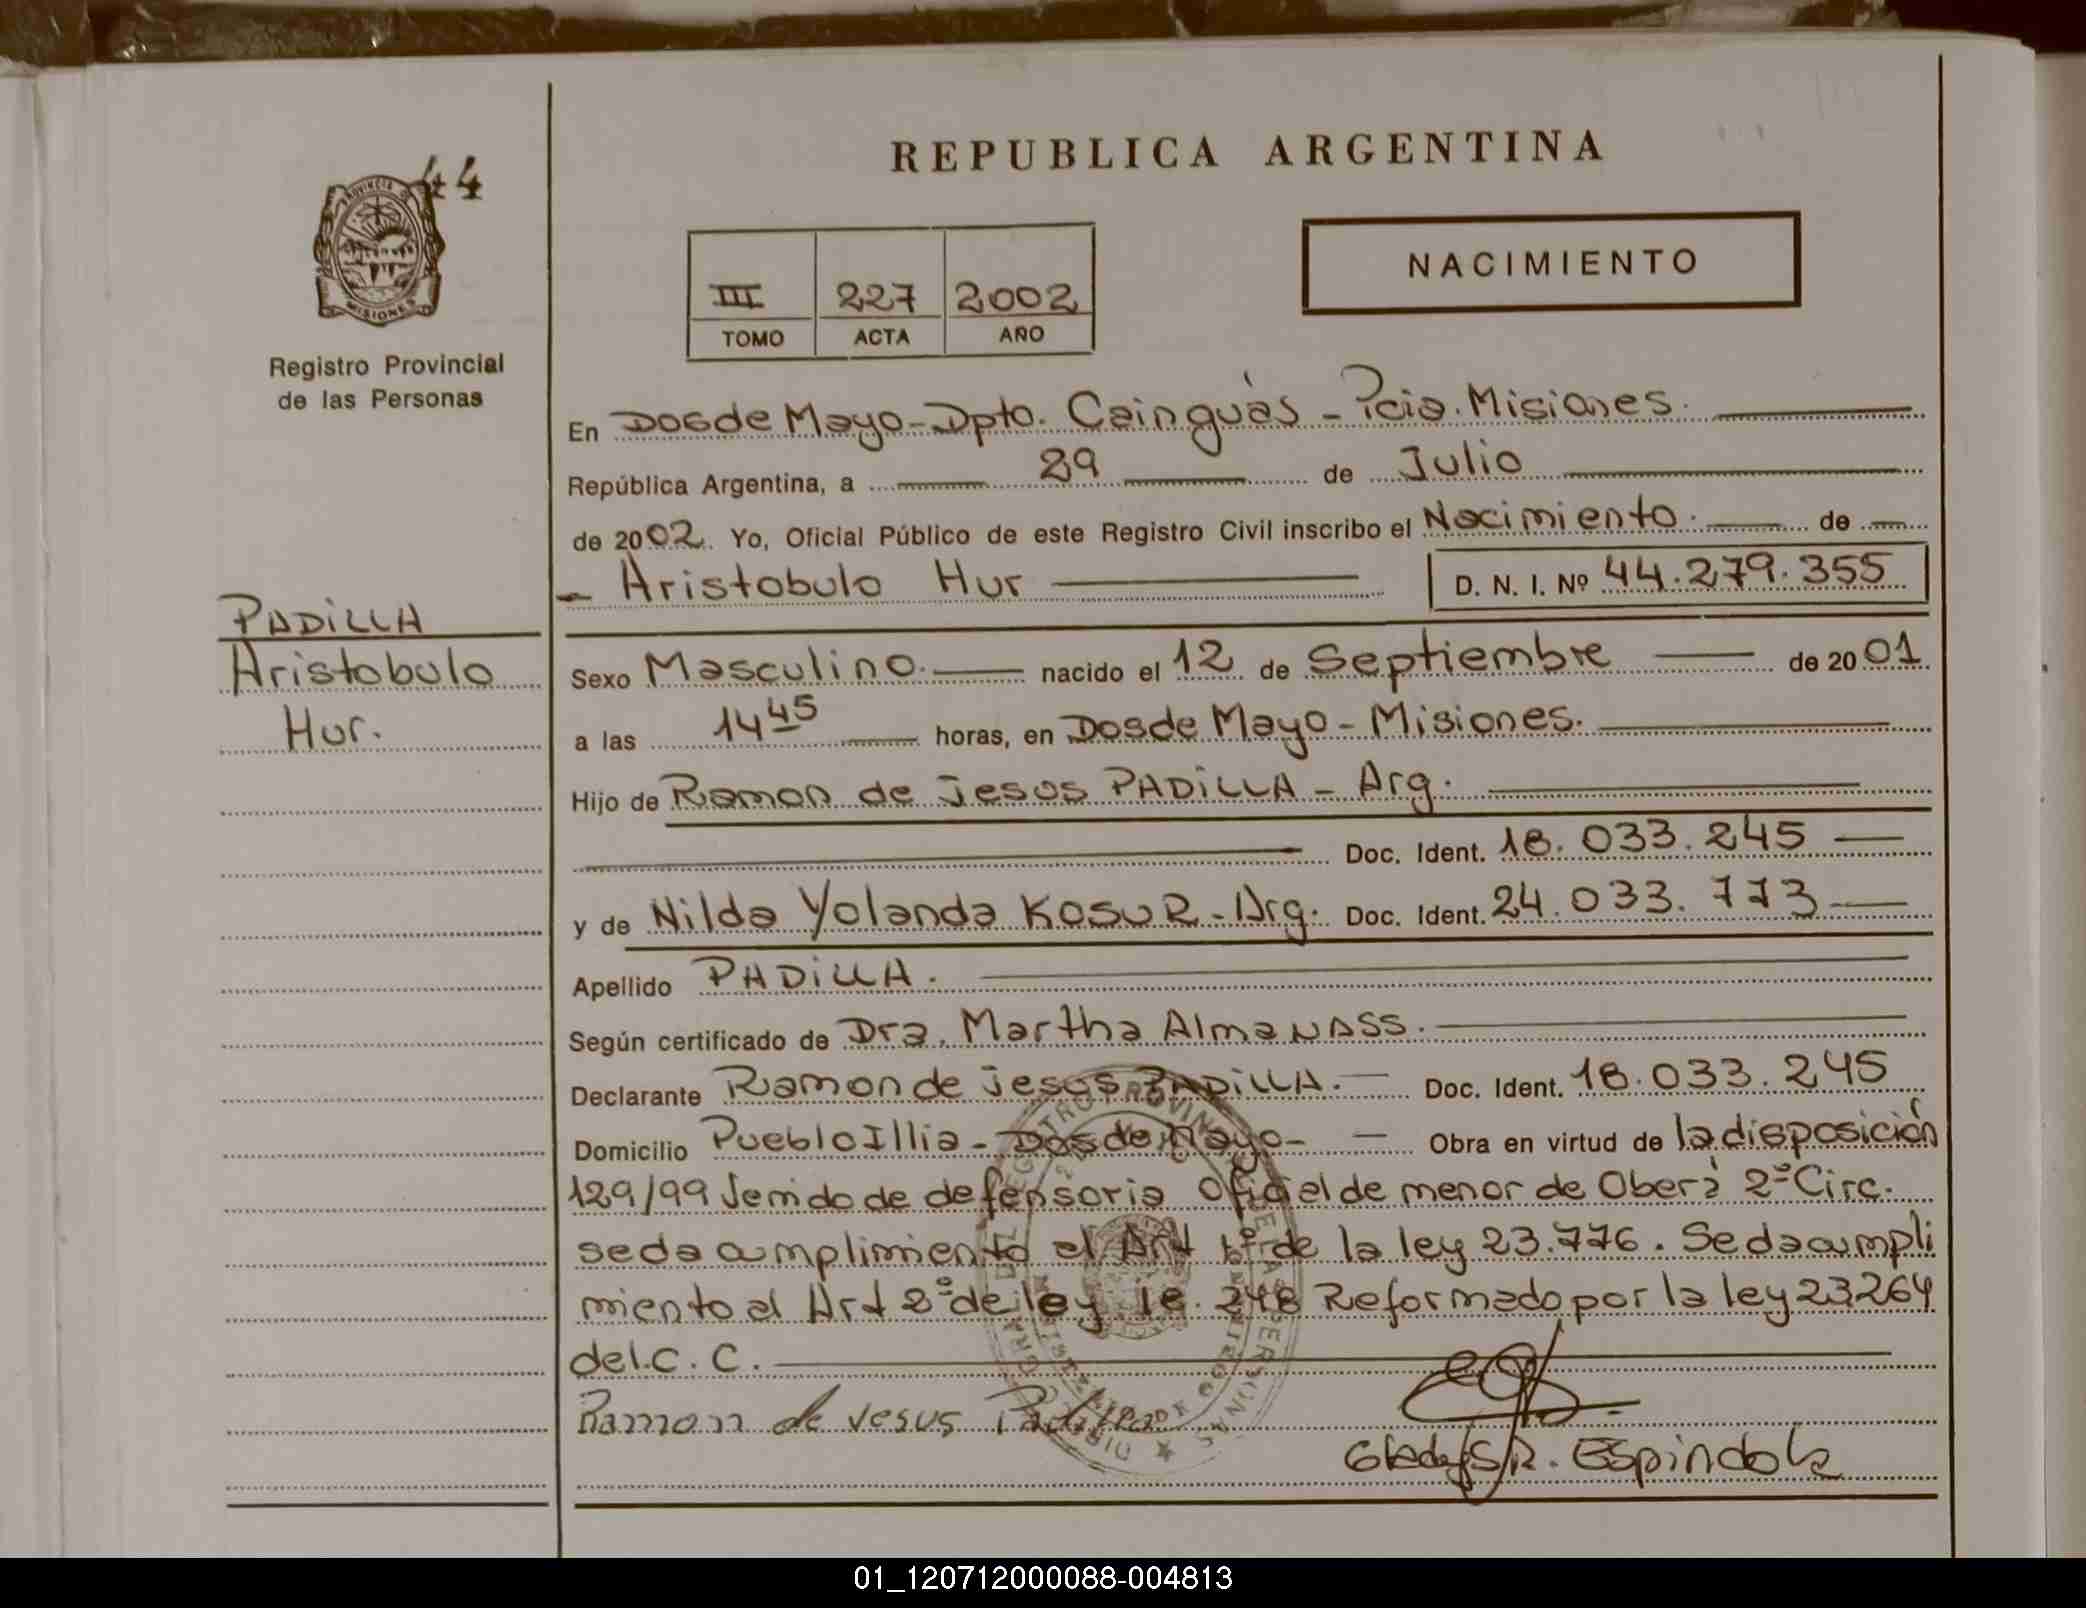 REPUBLICA ARGENTINA
44
PROVINCIA DE
MISIONES
NACIMIENTO
III 227 2002
TOMO ACTA AÑO
Registro Provincial
de las Personas
En Dos de Mayo - Dpto. Cainguás - Pcia. Misiones.
República Argentina, a 29 de Julio
de 2002. Yo, Oficial Público de este Registro Civil inscribo el Nacimiento. de
- Aristobulo Hur D. N. I. Nº 44.279.355
PADILLA
Aristobulo
Hur.
Sexo Masculino. nacido el 12 de Septiembre de 2001.
a las 14 45 horas, en Dos de Mayo - Misiones.
Hijo de Ramon de Jesus PADILLA - Arg.
Doc. Ident. 18.033.245
y de Nilda Yolanda KOSUR - Arg. Doc. Ident. 24.033.773
Apellido PADILLA.
Según certificado de Dra. Martha Almanass.
Declarante Ramon de Jesus PADILLA. Doc. Ident. 18.033.245
Domicilio Pueblo Illia - Dos de Mayo - Obra en virtud de la disposición
129/99 de defensoria Oficial de menor de Oberá 2º Circ.
se da cumplimiento al Art 1º de la ley 23.776. Se da cumpli
miento al Art 2º de ley 18.248 Reformado por la ley 23264
del C. C.
Ramon de Jesus Padilla
Gladys R. Espindola
01_120712000088-004813